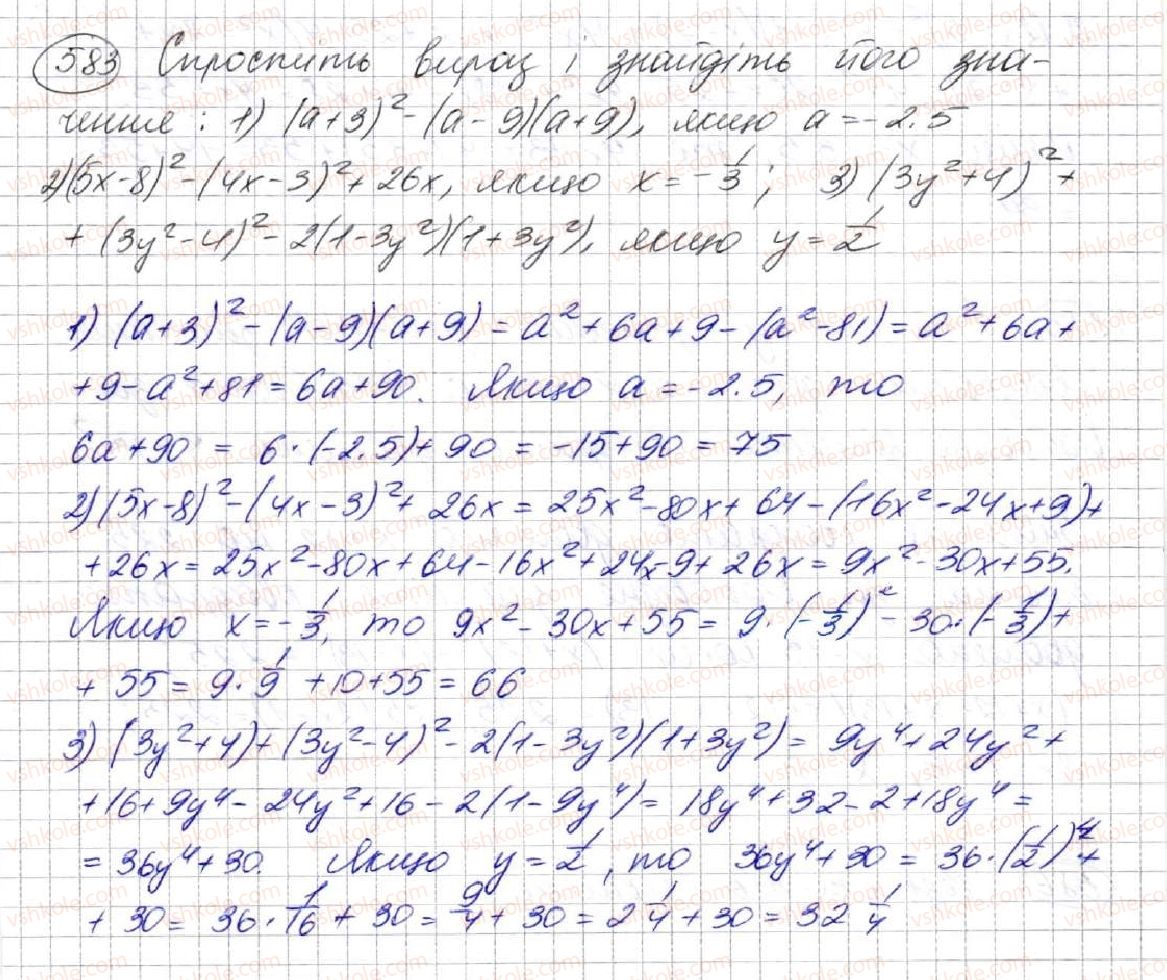 583 Спростіть вираз і знайдіть його зна-
чення: 1) (a+3)² - (a-9)(a+9), якщо a = -2.5
2) (5x-8)² - (4x-3)² + 26x, якщо x = -1/3; 3) (3y²+4)² +
+ (3y²-4)² - 2(1-3y²)(1+3y²), якщо y = 1/2
1) (a+3)² - (a-9)(a+9) = a² + 6a + 9 - (a²-81) = a² + 6a +
+ 9 - a² + 81 = 6a + 90. Якщо a = -2.5, то
6a + 90 = 6·(-2.5) + 90 = -15 + 90 = 75
2) (5x-8)² - (4x-3)² + 26x = 25x² - 80x + 64 - (16x² - 24x + 9) +
+ 26x = 25x² - 80x + 64 - 16x² + 24x - 9 + 26x = 9x² - 30x + 55.
Якщо x = -1/3, то 9x² - 30x + 55 = 9·(-1/3)² - 30·(-1/3) +
+ 55 = 9·1/9 + 10 + 55 = 66
3) (3y²+4) + (3y²-4)² - 2(1-3y²)(1+3y²) = 9y⁴ + 24y² +
+ 16 + 9y⁴ - 24y² + 16 - 2(1-9y⁴) = 18y⁴ + 32 - 2 + 18y⁴ =
= 36y⁴ + 30. Якщо y = 1/2, то 36y⁴ + 30 = 36·(1/2)⁴ +
+ 30 = 36·1/16 + 30 = 9/4 + 30 = 2 1/4 + 30 = 32 1/4